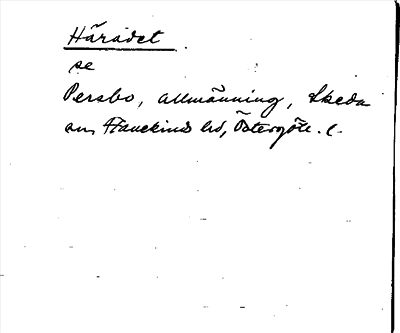 Häradet
se
Persbo, allmänning, Skeda
sn, Hanekinds hd, Östergötl. l.